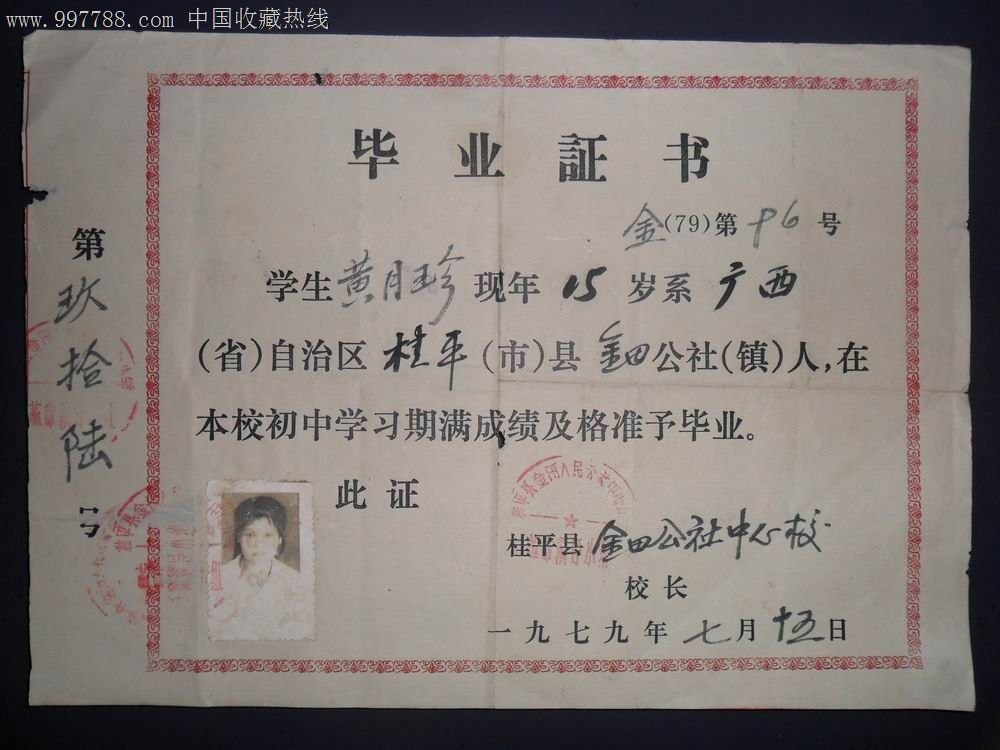 www.997788.com 中国收藏热线
毕业証书
金(79)第96号
学生黄月珍现年15岁系广西
(省)自治区桂平(市)县金田公社(镇)人,在
本校初中学习期满成绩及格准予毕业。
此证
桂平县金田公社中心校
校长
一九七九年七月十五日
第玖拾陆号